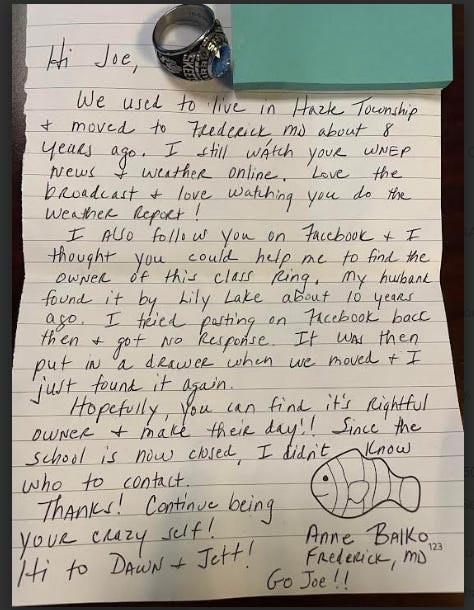 Hi Joe,
We used to live in Hazle Township
+ moved to Frederick MD about 8
years ago. I still watch your WNEP
news + weather online. Love the
broadcast + love watching you do the
weather report!
I also follow you on Facebook + I
thought you could help me to find the
owner of this class ring. My husband
found it by Lily Lake about 10 years
ago. I tried posting on Facebook back
then + got no response. It was then
put in a drawer when we moved + I
just found it again.
Hopefully, you can find it's rightful
owner + make their day!! Since the
school is now closed, I didn't know
who to contact.
Thanks! Continue being
your crazy self!
Hi to Dawn + Jett!
Anne Balko
Frederick, MD
123
Go Joe!!